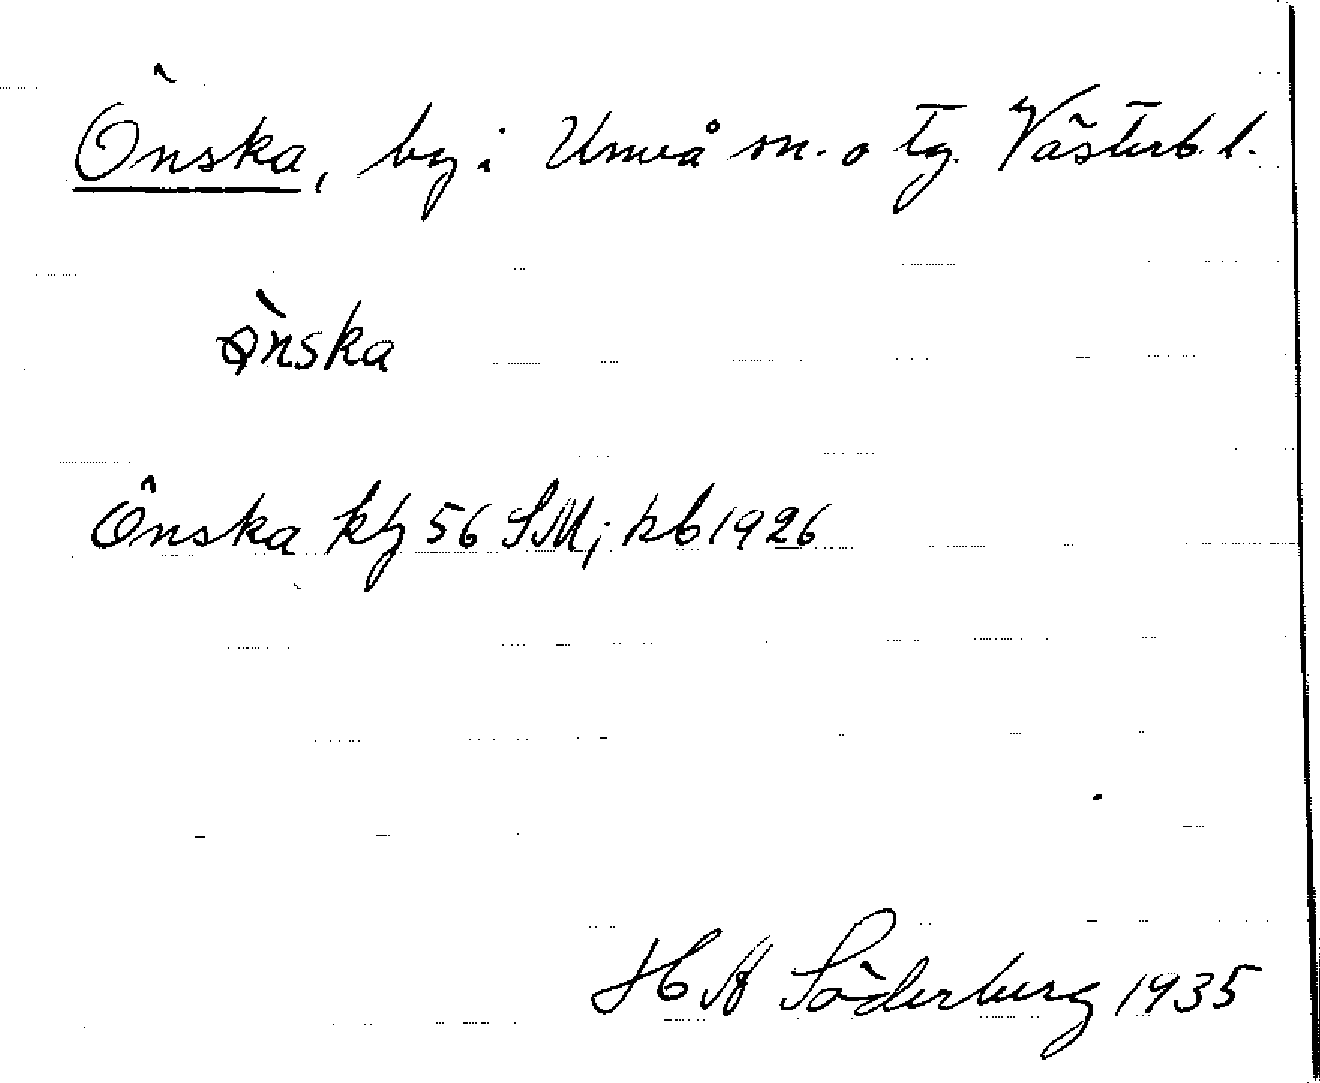 Önska, by i Umeå sn. o tg. Västerb. l.
ònska
Önska kbg 56 SM; kb 1926
H A Söderberg 1935